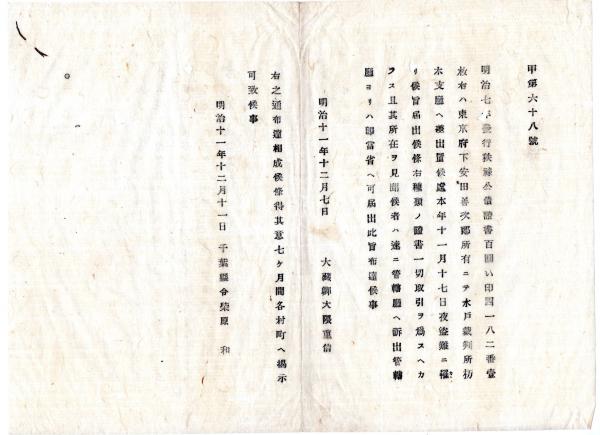 甲第六十八號
明治七年發行秩祿公債證書百圓い印四一八二番壹
枚右ハ東京府下安田善次郎所有ニテ水戸裁判所杤
木支廳ヘ差出置候處本年十一月十七日夜盜難ニ罹
リ候旨屆出候條右種類ノ證書一切取引ヲ爲スヘカ
ラス且其所在ヲ見聞候者ハ速ニ管轄廳ヘ訴出管轄
廳ヨリハ即當省ヘ可屆出此旨布達候事
明治十一年十二月七日 大藏卿大隈重信
右之通布達相成候條得其意七ケ月間各村町ヘ揭示
可致候事
明治十一年十二月十一日 千葉縣令柴原 和